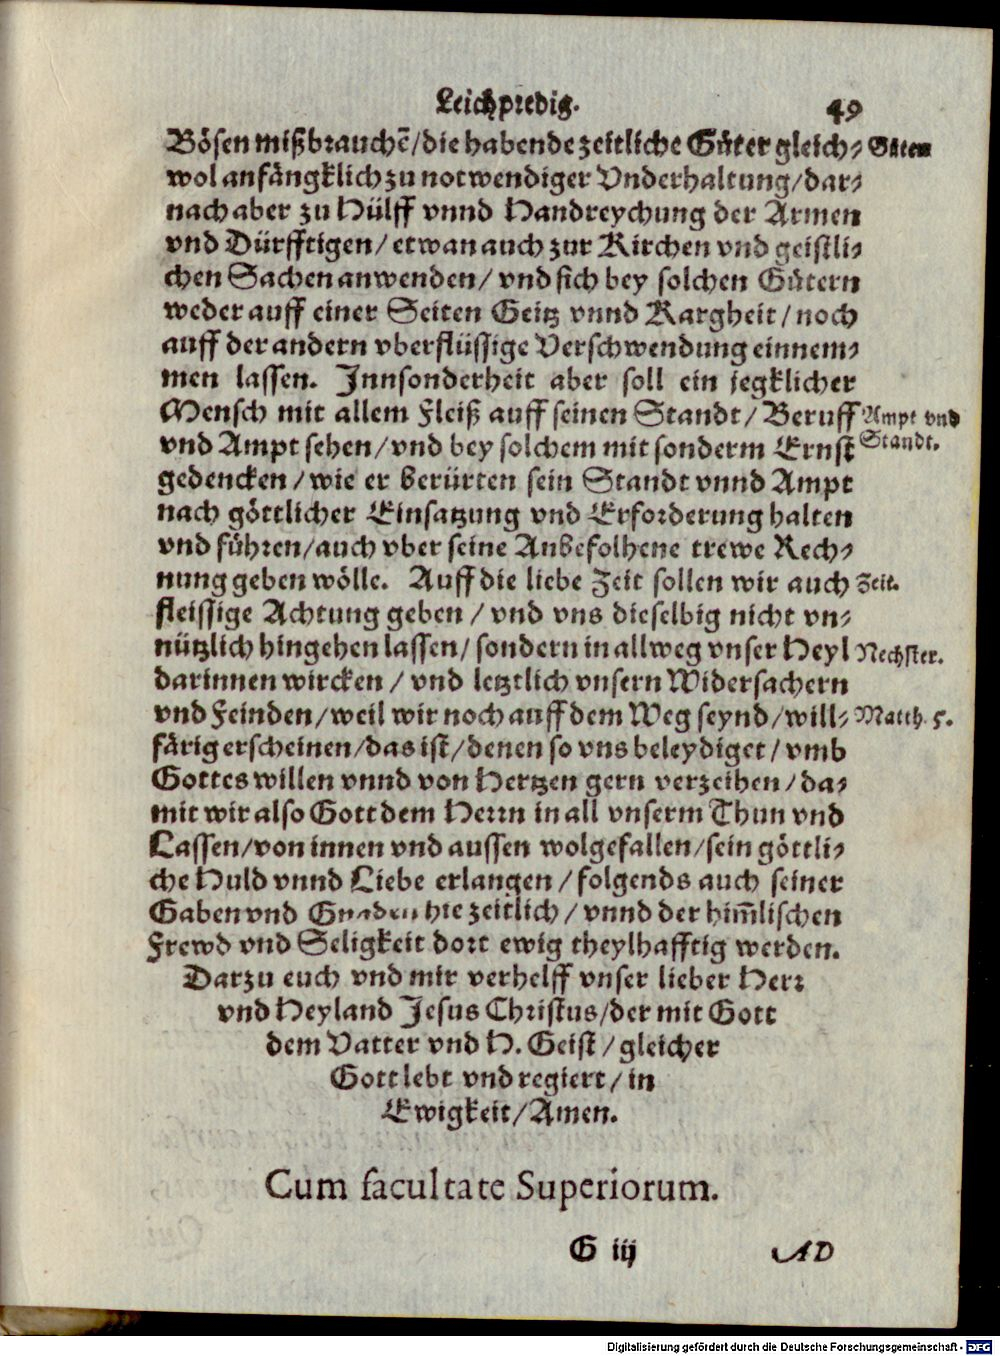 Leichpredig. 49
Bösen mißbrauchē/die habende zeitliche Güter gleich- Güter
wol anfängklich zu notwendiger Vnderhaltung/dar-
nach aber zu Hülff vnnd Handreychung der Armen
vnd Dürfftigen/etwan auch zur Kirchen vnd geistli-
chen Sachen anwenden/vnd sich bey solchen Gütern
weder auff einer Seiten Geitz vnnd Kargheit/noch
auff der andern vberflüssige Verschwendung einnem-
men lassen. Innsonderheit aber soll ein jegklicher
Mensch mit allem Fleiß auff seinen Standt/Beruff Ampt vnd
vnd Ampt sehen/vnd bey solchem mit sonderm Ernst Standt.
gedencken/wie er berürten sein Standt vnnd Ampt
nach göttlicher Einsatzung vnd Erforderung halten
vnd führen/auch vber seine Anbefolhene trewe Rech-
nung geben wölle. Auff die liebe Zeit sollen wir auch Zeit.
fleissige Achtung geben/vnd vns dieselbig nicht vn-
nützlich hingehen lassen/sondern in allweg vnser Heyl Nechster.
darinnen wircken/vnd letztlich vnsern Widersachern
vnd Feinden/weil wir noch auff dem Weg seynd/will- Matth. 5.
färig erscheinen/das ist/denen so vns beleydiget/vmb
Gottes willen vnnd von Hertzen gern verzeihen/da-
mit wir also Gott dem Herrn in all vnserm Thun vnd
Lassen/von innen vnd aussen wolgefallen/sein göttli-
che Huld vnnd Liebe erlangen/folgends auch seiner
Gaben vnd Gnaden hie zeitlich/vnnd der him̄lischen
Frewd vnd Seligkeit dort ewig theylhafftig werden.
Darzu euch vnd mir verhelff vnser lieber Herr
vnd Heyland Jesus Christus/der mit Gott
dem Vatter vnd H. Geist/gleicher
Gott lebt vnd regiert/in
Ewigkeit/Amen.
Cum facultate Superiorum.
G iij AD
Digitalisierung gefördert durch die Deutsche Forschungsgemeinschaft - DFG